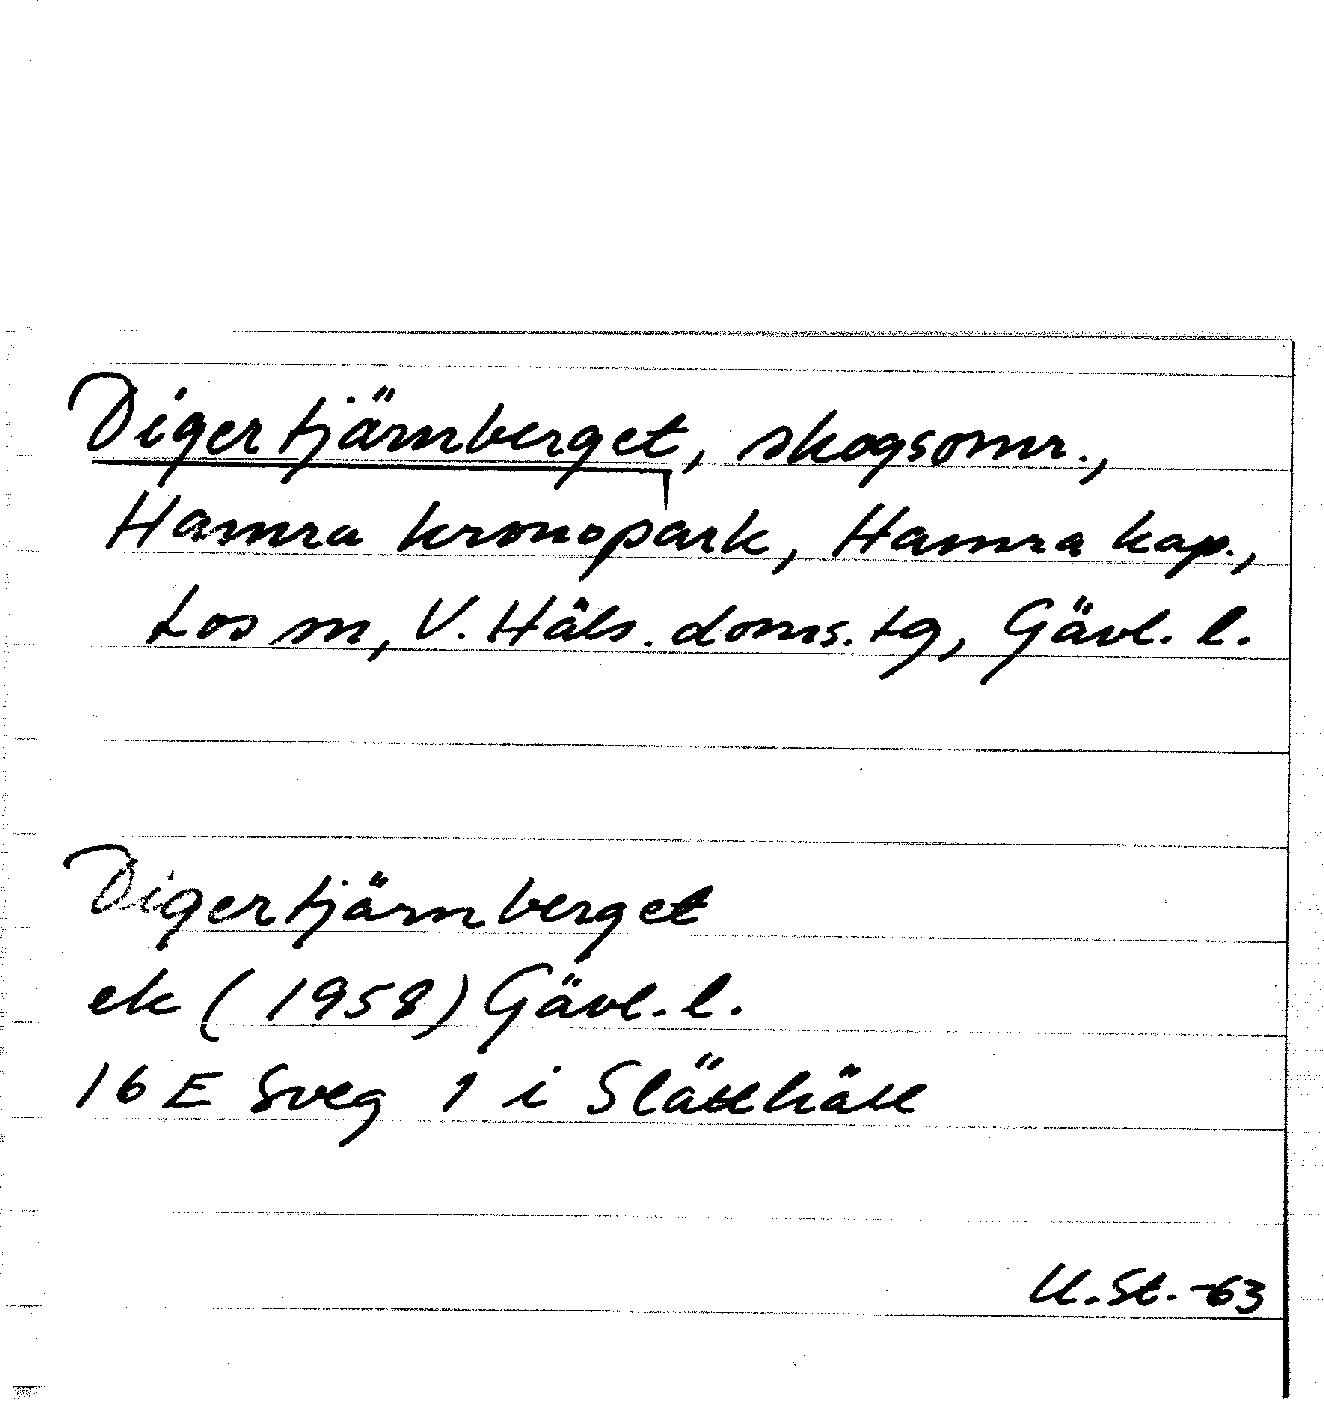 Digertjärnberget, skogsomr.,
Hamra kronopark, Hamra kap.,
Los sn, V. Häls. doms. tg, Gävl. l.
Digertjärnberget
ek (1958) Gävl. l.
16 E Sveg 1 i Slätthätt
U. St. -63